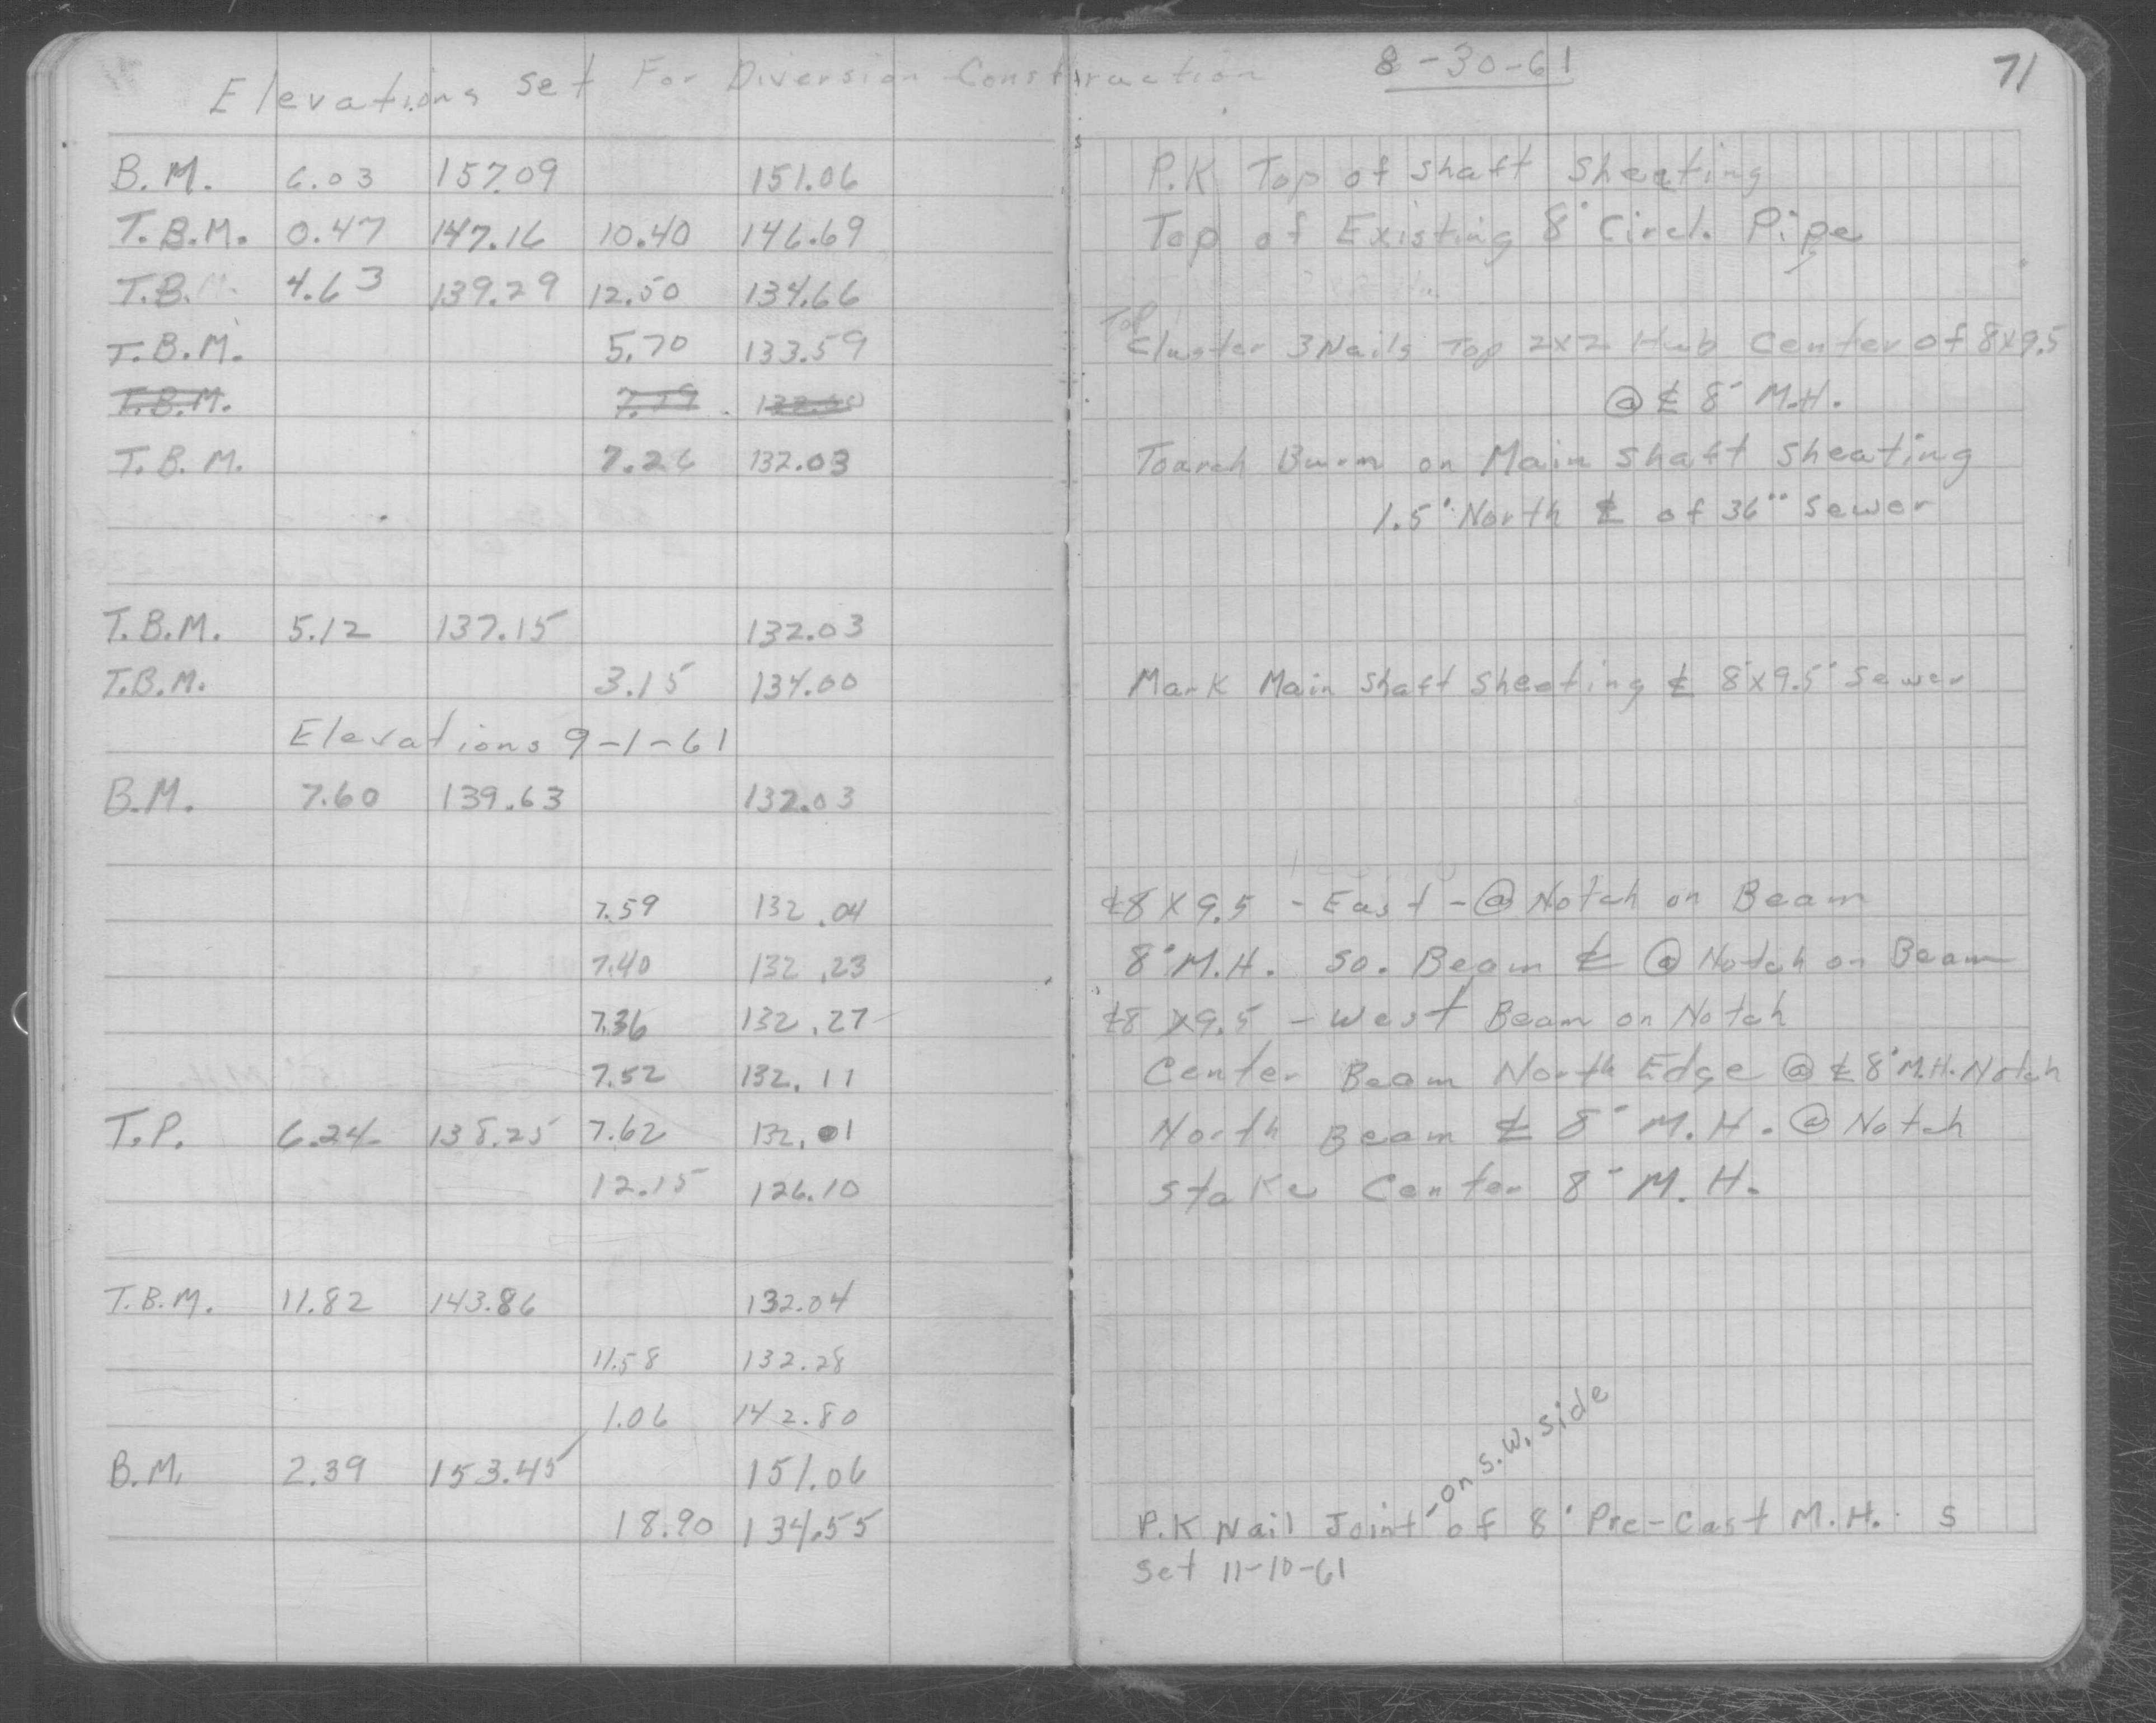 Elevations Set For Diversion Construction 8-30-61 71
B.M. 6.03 157.09 151.06 P.K Top of Shaft Sheeting
T.B.M. 0.47 147.16 10.40 146.69 Top of Existing 8' Circl. Pipe
T.B.M. 4.63 139.29 12.50 134.66
Top
T.B.M. 5.70 133.59 Cluster 3 Nails Top 2x2 Hub Center of 8x9.5
T.B.M. 7.29 @ ℄ 8' M.H.
T.B.M. 7.26 132.03 Toarch Burn on Main Shaft Sheating
1.5' North ℄ of 36" Sewer
T.B.M. 5.12 137.15 132.03
T.B.M. 3.15 134.00 Mark Main Shaft Sheeting ℄ 8'x9.5' Sewer
Elevations 9-1-61
B.M. 7.60 139.63 132.03
7.59 132.04 ℄8 X 9.5 - East - @ Notch on Beam
7.40 132.23 8' M.H. So. Beam ℄ @ Notch on Beam
7.36 132.27 ℄8 X9.5 - West Beam on Notch
7.52 132.11 Center Beam North Edge @ ℄ 8' M.H. Notch
T.P. 6.24 138.25 7.62 132.01 North Beam ℄ 8' M.H. @ Notch
12.15 126.10 Stake Center 8' M.H.
T.B.M. 11.82 143.86 132.04
11.58 132.28
1.06 142.80
B.M. 2.39 153.45 151.06
- on S.W. side
18.90 134.55 P.K Nail Joint of 8' Pre-Cast M.H. S
Set 11-10-61